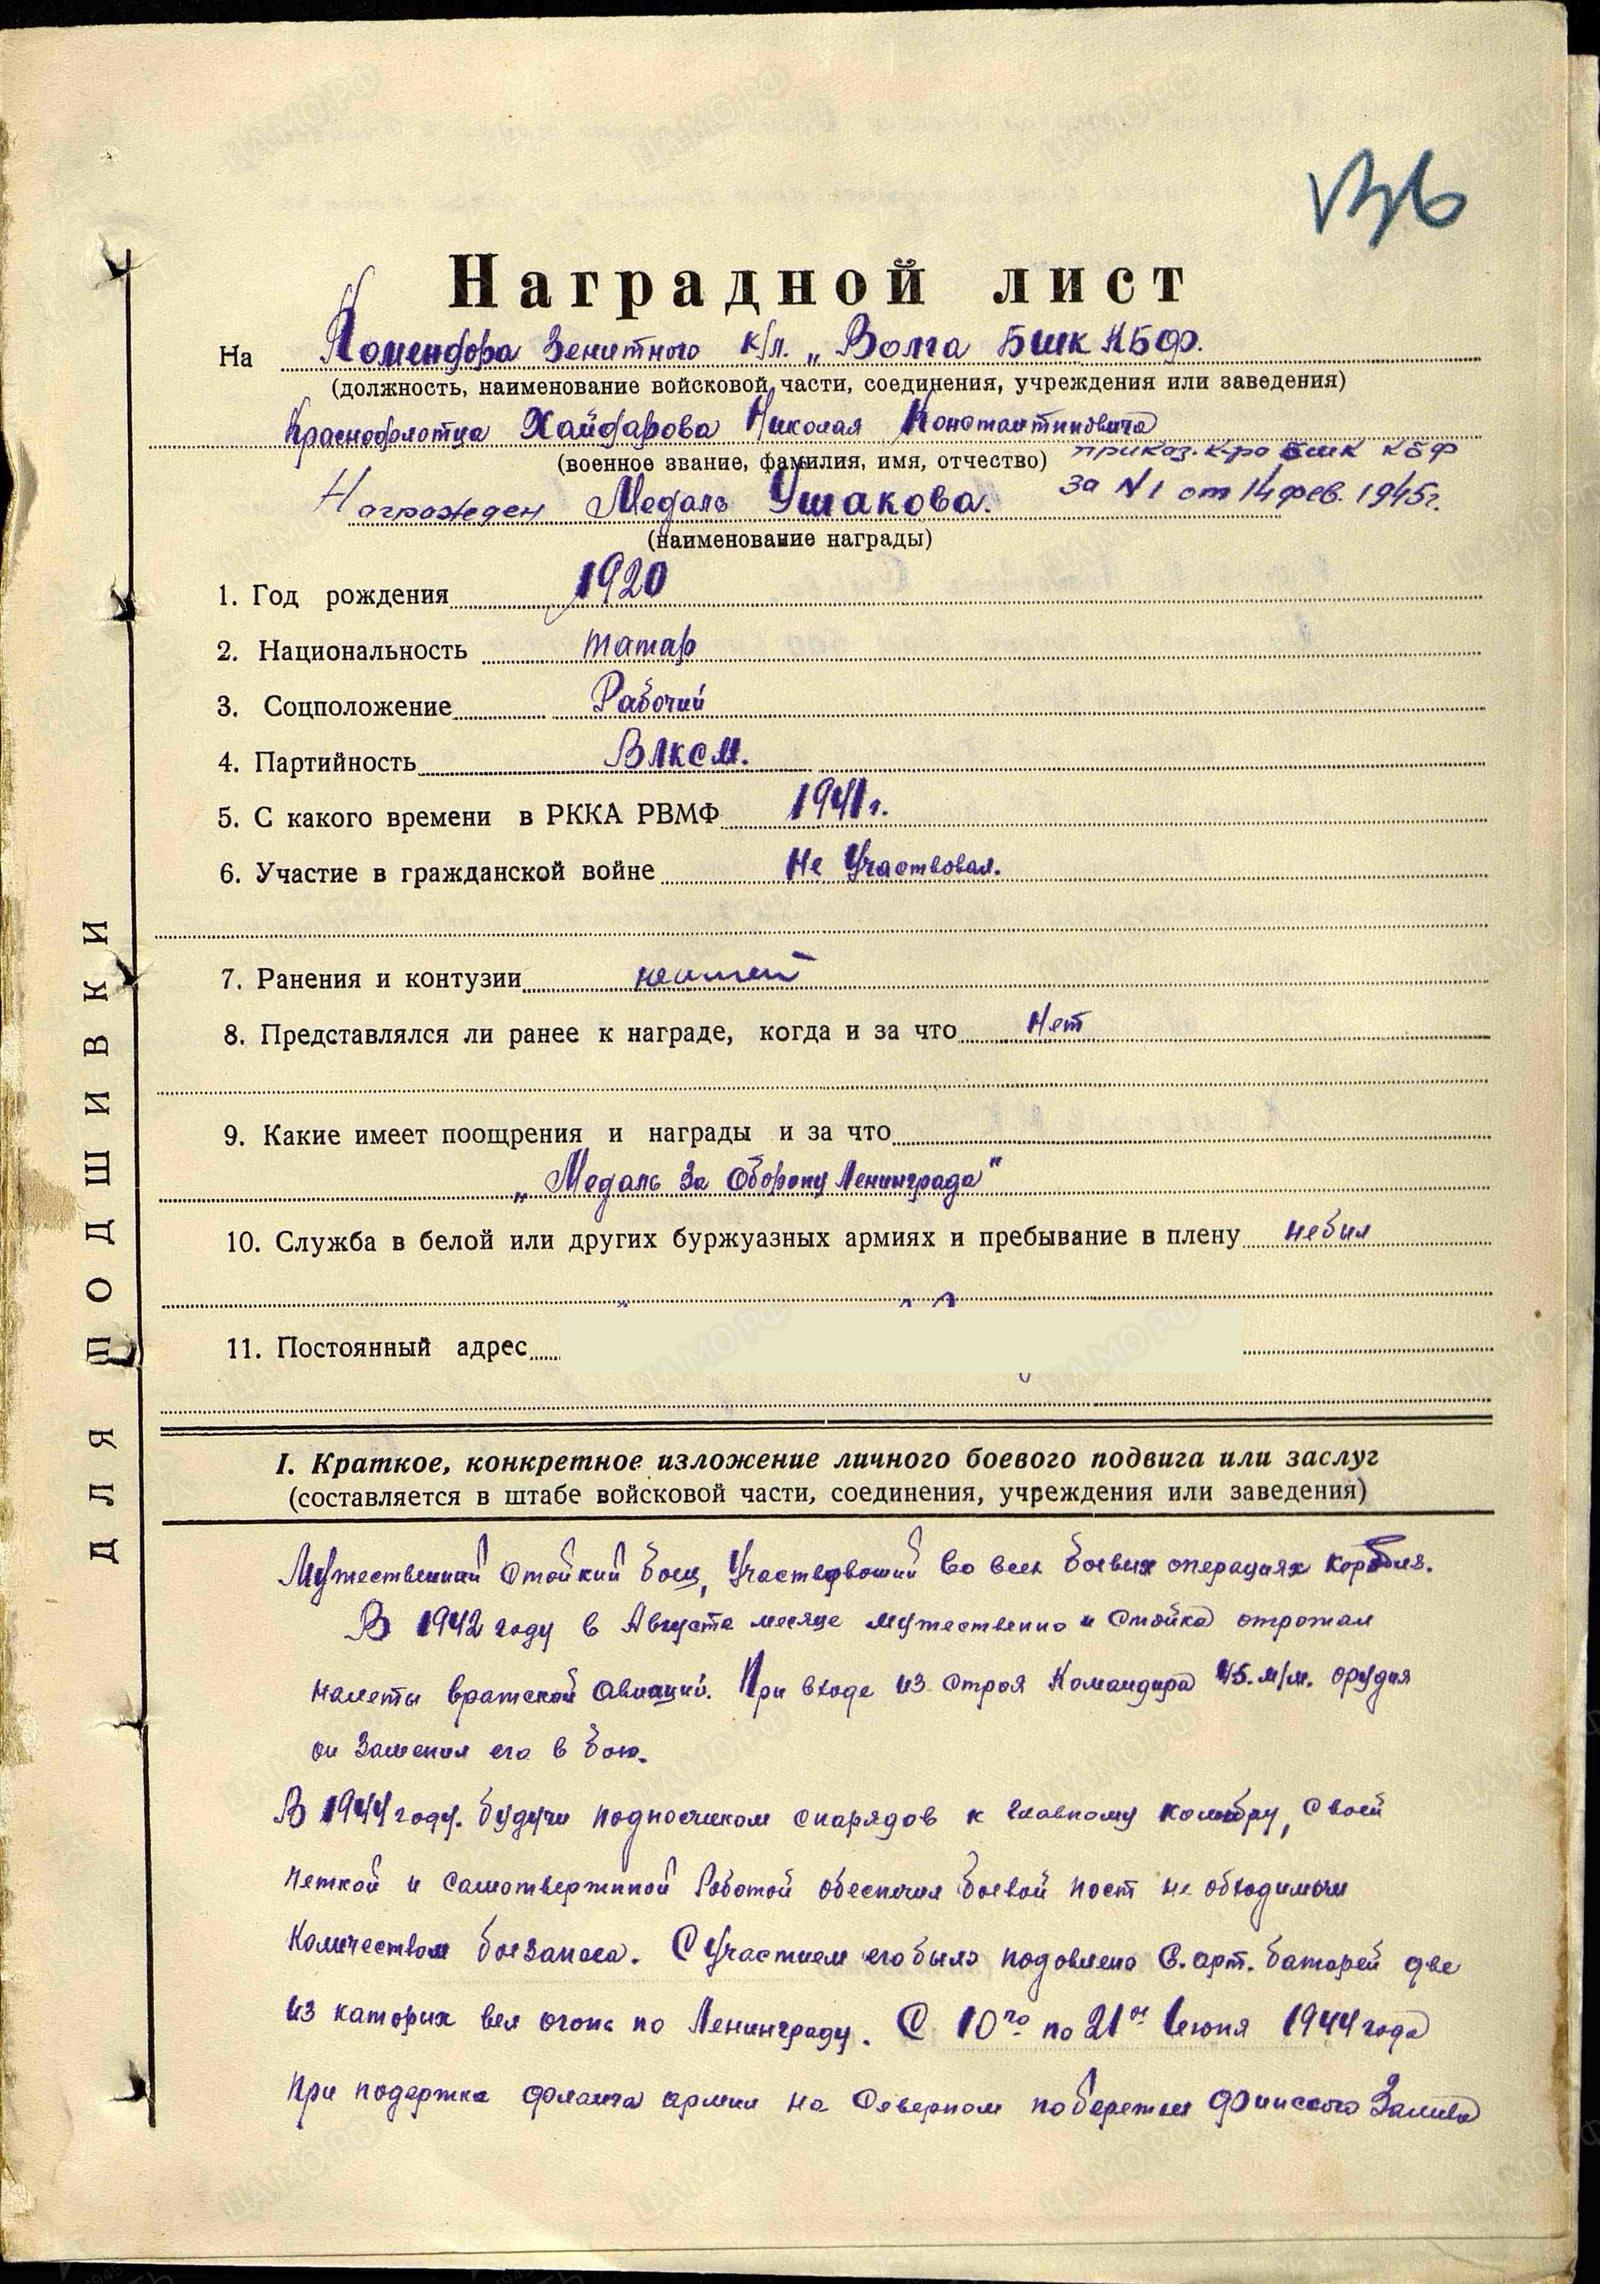 136
Наградной лист
На Комендора Зенитного к/л. „Волга БШК КБФ.
(должность, наименование войсковой части, соединения, учреждения или заведения)
Краснофлотца Хайдарова Николая Константиновича
(военное звание, фамилия, имя, отчество) приказ. к-ра БШК КБФ
Награжден Медаль Ушакова. за N1 от 14 фев. 1945г.
(наименование награды)
1. Год рождения 1920
2. Национальность татар
3. Соцположение Рабочий
4. Партийность ВЛКСМ.
5. С какого времени в РККА РВМФ 1941г.
6. Участие в гражданской войне Не Участвовал.
7. Ранения и контузии неимеет
8. Представлялся ли ранее к награде, когда и за что Нет
9. Какие имеет поощрения и награды и за что
„Медаль За Оборону Ленинграда"
10. Служба в белой или других буржуазных армиях и пребывание в плену небыл
11. Постоянный адрес
ДЛЯ ПОДШИВКИ
I. Краткое, конкретное изложение личного боевого подвига или заслуг
(составляется в штабе войсковой части, соединения, учреждения или заведения)
Мужественний Стойкий боец, Участвовший во всех боевых операциях корабля.
В 1942 году в Августе месяце мужественно и Стойка отрожал
налеты вражеской авиаций. При входе из Строя Командира 45.м/м. орудия
он Заменил его в бою.
В 1944 году. будучи подносчиком снарядов к главному калибру, Своей
четкой и самотверженой Работой обеспечил боевой пост не обходимым
Количеством боезапаса. С Участием его было подовлено 6. арт. батарей две
из каторых вел огонь по Ленинграду. С 10го по 21ое Июня 1944 года
При подержке фланга армии на Северном побережьи Финского Залива